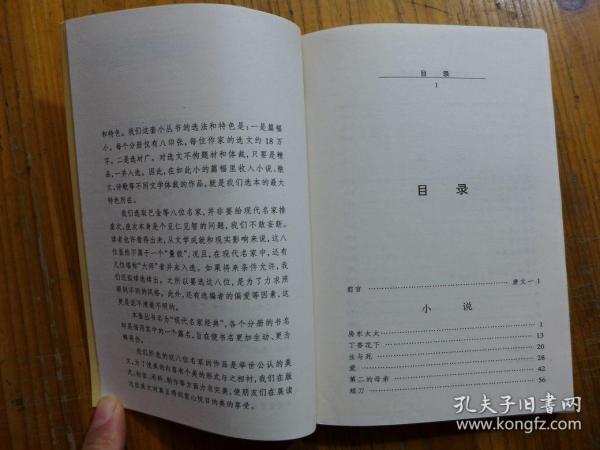 和特色。我们这套小丛书的选法和特色是：一是篇幅
小。每个分册仅有八印张，每位作家的选文约18万
字。二是选材广。对选文不拘题材和体裁，只要是精
品，一并入选。因此，在如此小的篇幅里收入小说、散
文、诗歌等不同文学体裁的作品，就是我们选本的最大
特色所在。
我们选取巴金等八位名家，并非要给现代名家排
座次，座次本身是个见仁见智的问题，我们不敢妄断。
读者也许看得出来，从文学成就和现实影响来说，这八
位显然不属于一个“量级”，况且，在现代名家中，还有
几位堪称“大师”者并未入选。如果将来条件允许，我
们还拟续选续出。之所以要选这八位，是为了力求照
顾到不同的风格。此外，还有选编者的偏爱等因素，这
更是说不清道不明的。
本套丛书名为“现代名家经典”，各个分册的书名
却是借用其中的一个篇名，旨在使书名更加生动、更为
鲜亮些。
我们所选的这八位名家的作品是举世公认的美
文，为了使美的内容有个美的形式与之相衬，我们在版
式、封面、用料、制作等方面力求完美，使朋友们在展读
这些美文时真正得到赏心悦目的美的享受。
目 录
1
目 录
前言 唐文一 1
小 说
房东太太 1
丁香花下 13
生与死 20
爱 28
第二的母亲 42
短刀 56
孔夫子旧书网
www.kongfz.com